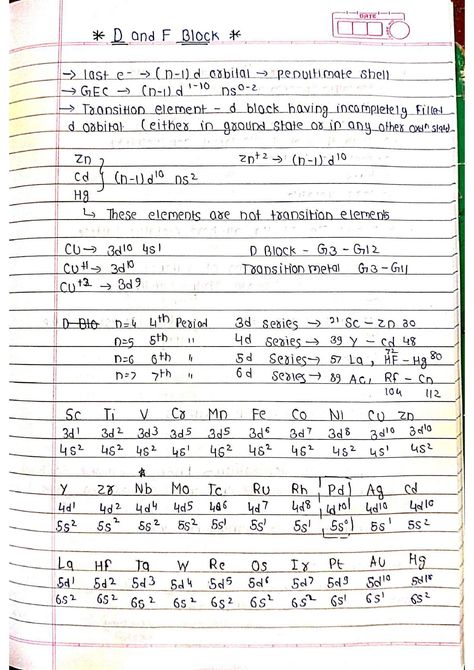 DATE
* D and F Block *
→ last e- → (n-1)d orbital → penultimate shell
→ GEC → (n-1)d¹⁻¹⁰ ns⁰⁻²
→ Transition element - d block having incompletely filled
d orbital (either in ground state or in any other oxdn state).
Zn Zn⁺² → (n-1)d¹⁰
Cd } (n-1)d¹⁰ ns²
Hg
↳ These elements are not transition elements
CU → 3d¹⁰ 4s¹ D Block - G3 - G12
CU⁺¹ → 3d¹⁰ Transition metal G3-G11
CU⁺² → 3d⁹
D Blo n=4 4th Period 3d series → 21 Sc - Zn 30
n=5 5th " 4d series → 39 Y - Cd 48
n=6 6th " 5d series → 57 La, 72 HF - Hg 80
n=7 7th " 6d series → 89 Ac, Rf - Cn
104 112
Sc Ti V Cr Mn Fe Co Ni CU Zn
3d¹ 3d² 3d³ 3d⁵ 3d⁵ 3d⁶ 3d⁷ 3d⁸ 3d¹⁰ 3d¹⁰
4s² 4s² 4s² 4s¹ 4s² 4s² 4s² 4s² 4s¹ 4s²
*
Y Zr Nb Mo Tc Ru Rh Pd Ag Cd
4d¹ 4d² 4d⁴ 4d⁵ 4d⁷ 4d⁸ 4d¹⁰ 4d¹⁰ 4d¹⁰
5s² 5s² 5s¹ 5s¹ 5s¹ 5s⁰ 5s¹ 5s²
La Hf Ta W Re Os Ir Pt AU Hg
5d¹ 5d² 5d³ 5d⁴ 5d⁵ 5d⁶ 5d⁷ 5d⁹ 5d¹⁰ 5d¹⁰
6s² 6s² 6s² 6s² 6s² 6s² 6s² 6s¹ 6s¹ 6s²